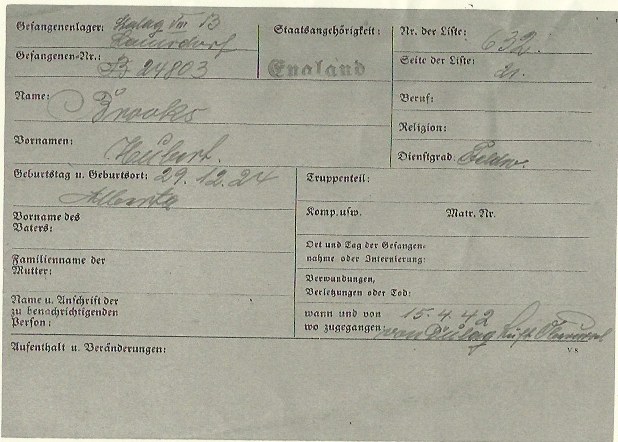 Gefangenenlager: Stalag VIII B
Lamsdorf
Gefangenen-Nr.: B 24803
Staatsangehörigkeit:
England
Nr. der Liste: 632.
Seite der Liste: 21.
Name: Brooks
Vornamen: Hubert.
Beruf:
Religion:
Dienstgrad: Feldw.
Geburtstag u. Geburtsort: 29.12.24
Alberta
Vorname des
Vaters:
Familienname der
Mutter:
Name u. Anschrift der
zu benachrichtigenden
Person:
Truppenteil:
Komp. usw. Matr. Nr.
Ort und Tag der Gefangen-
nahme oder Internierung:
Verwundungen,
Verletzungen oder Tod:
wann und von 15.4.42
wo zugegangen: von Dulag Luft Oberursel
Aufenthalt u. Veränderungen: